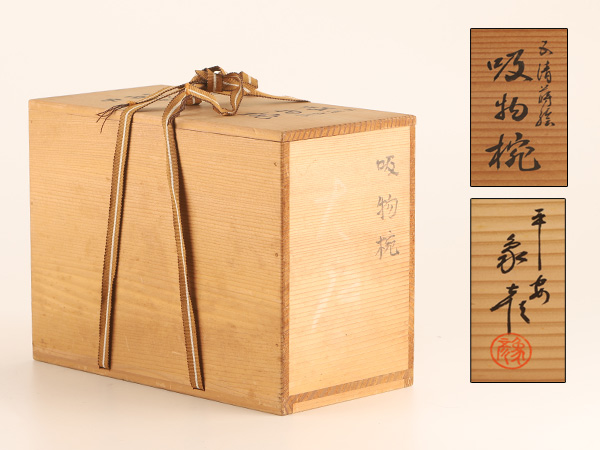 吸物椀
五清蒔絵
吸物椀
平安
象彦